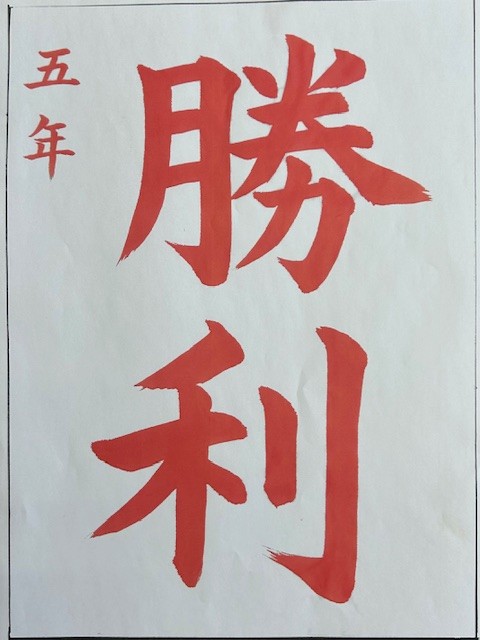 勝利
五年